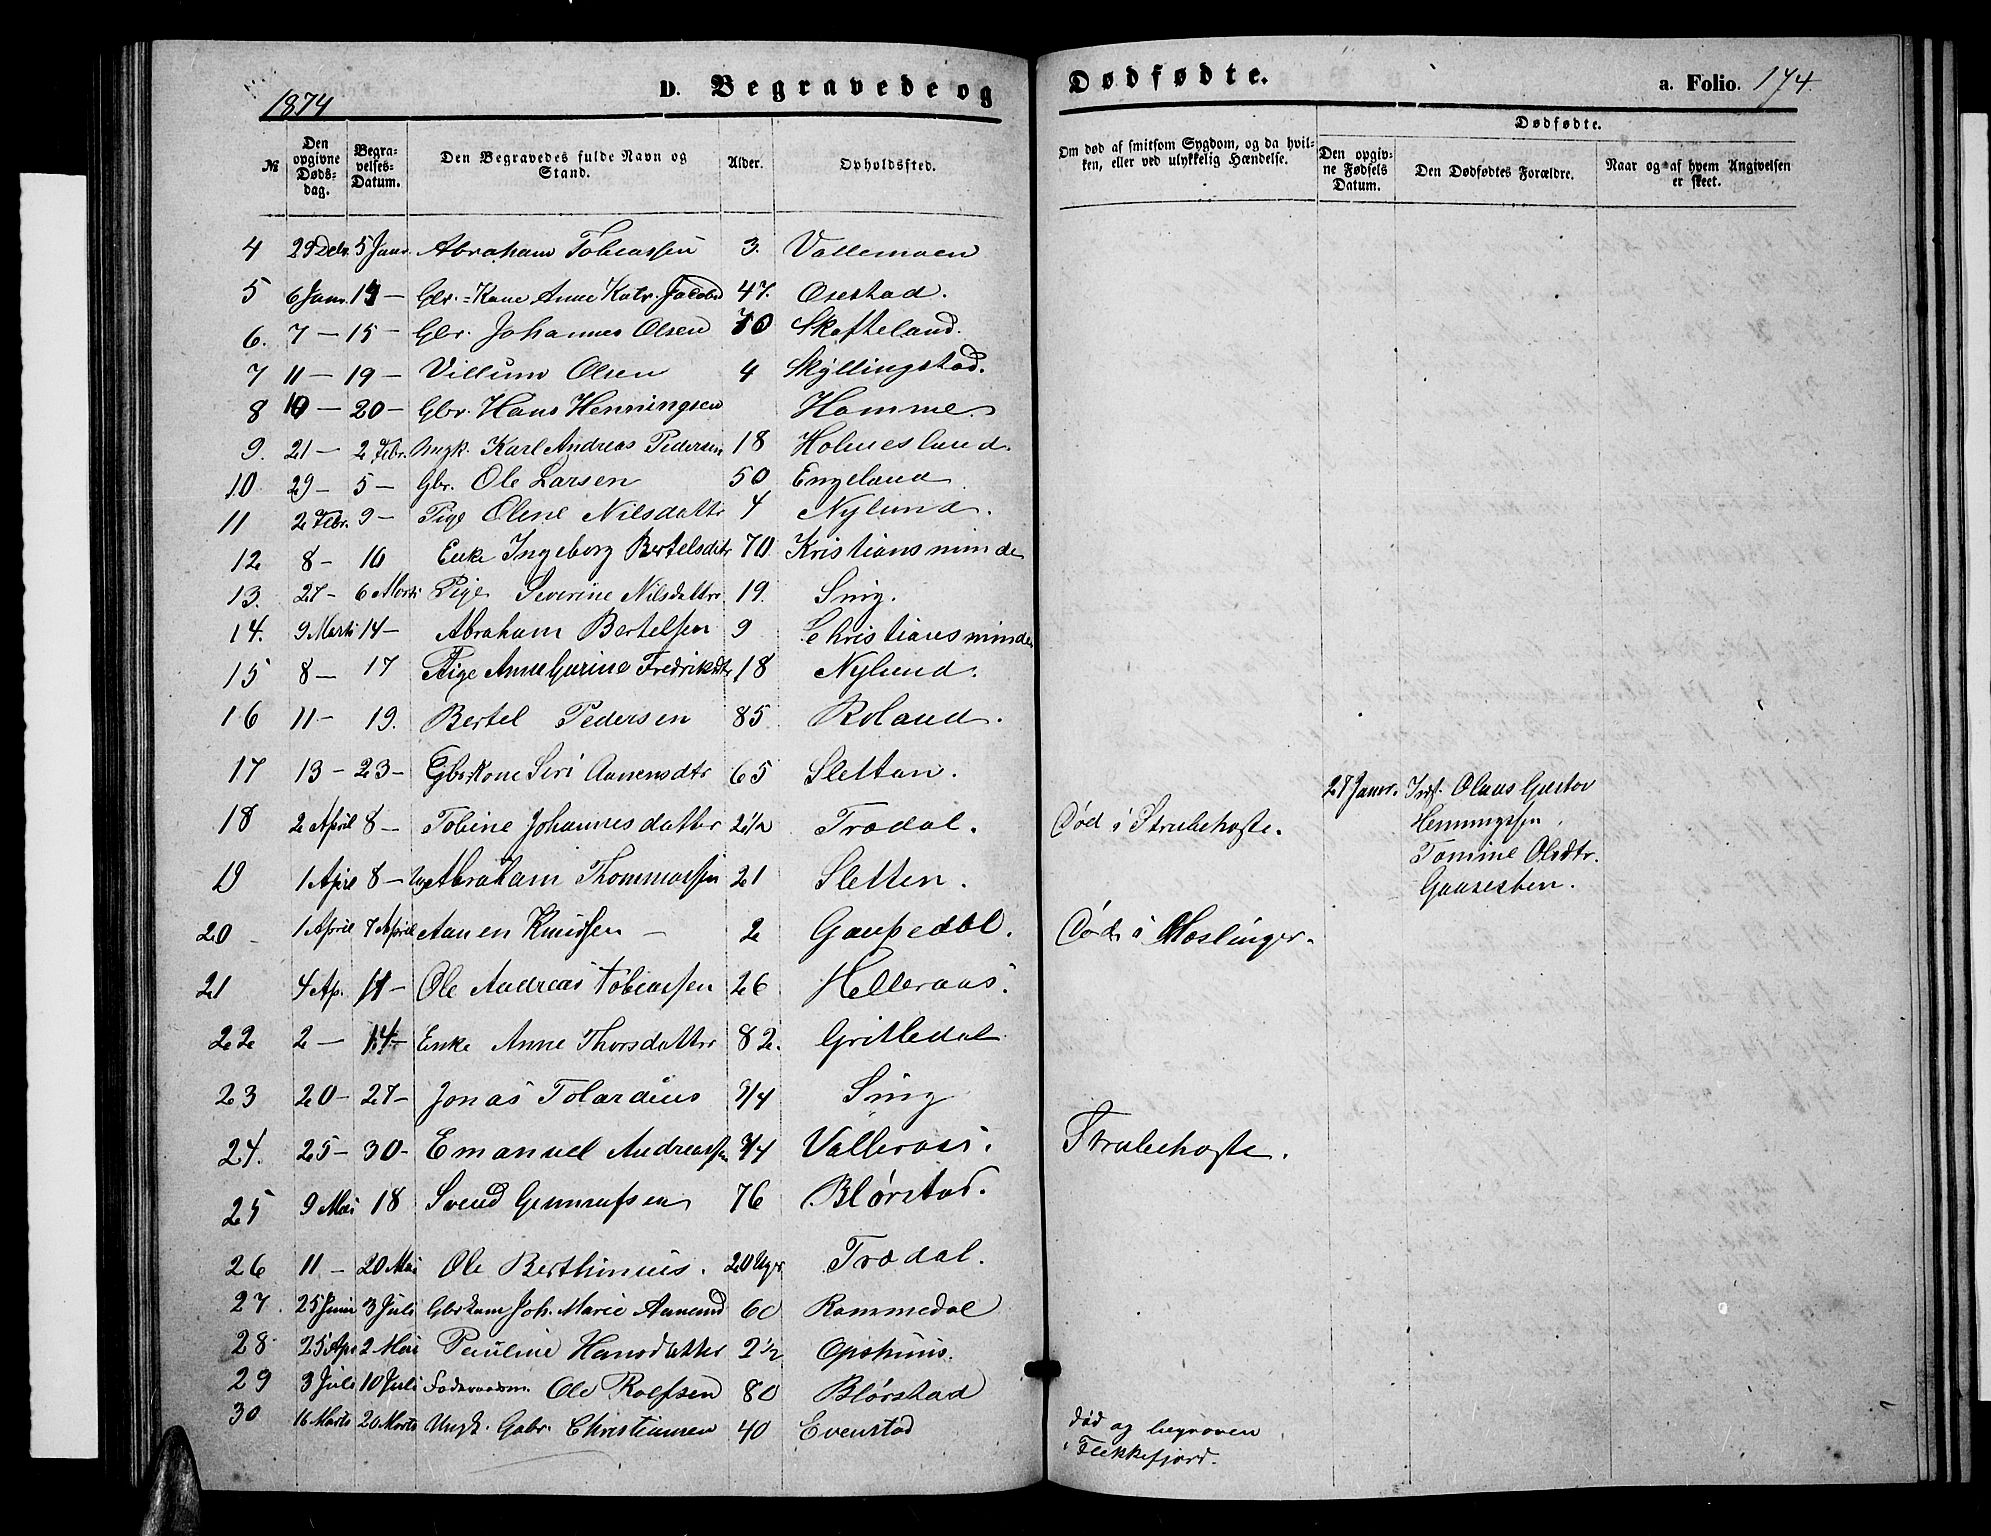 1874
D. Begravede og
Dødfødte.
a. Folio. 174.
№
Den opgivne Døds-dag.
Begra-velses-Datum.
Den Begravedes fulde Navn og Stand.
Alder.
Opholdssted.
Om død af smitsom Sygdom, og da hvil-ken, eller ved ulykkelig Hændelse.
Dødfødte.
Den opgiv-ne Fødsels Datum.
Den Dødfødtes Forældre.
Naar og af hvem Angivelsen er skeet.
4 29 Decbr. 5 Janr. Abraham Tobiassen 3. Vallemoen
5 6 Janr. 14 — Gbr.=Kone Anne Katr. Jacobsd 47. Osestad.
6. 7 — 15 — Gbr. Johannes Olsen 70 Skofteland.
7 11 — 19 — Villum Olsen 4 Skyllingstad.
8 10 — 20 — Gbr. Hans Henningsen Homme
9. 21 — 2 Febr. Ungk. Karl Andreas Pedersen 18 Holmesland.
10 29 — 5 — Gbr. Ole Larsen 50 Engeland
11 2 Febr. 9 — Pige Olene Nilsdattr 4 Nylund.
12 8 — 10 Enke Ingeborg Bertelsdtr 70 Kristiansminde
13. 27 — 6 Marts Pige Severine Nilsdattr 19. Smig.
14. 9 Marts 14 — Abraham Bertelsen 9 Christiansminde
15 8 — 17 Pige Anne Gurine Fredriksdtr 18 Nylund.
16 11 — 19. Bertel Pedersen 85. Roland.
17 13 — 23 — Gbrkone Siri Aanensdtr 65 Sletten.
18 2 April 8 — Tobine Johannesdatter 2 1/2 Trædal. Død i Strubehoste.
28 Janr. Inds. Olaus Gustav
Henningssen,
Tomine Olsdtr.
Gaasesten.
19 1 April 8 — Ug Abraham Thommassen 21 Sletten.
20 — 1 April 7 April Aanen Knudsen — 2 Gaupedal. Død i Mæslinger.
21 4 Ap. 11 — Ole Andreas Tobiassen 26 Helleraas.
22 2 — 14 — Enke Anne Thorsdatter 82. Gritledal
23 20 — 27 — Jonas Tolardius 3/4 Smig
24. 25 — 30 — Emanuel Andreassen 3/4 Valleraas. Strubehoste.
25 9 Mai 18 Svend Gunnufsen 76 Blørstad.
26 11 — 20 Mai Ole Berthinius. 20 Uger Trædal.
27. 25 Juni 3 Juli Gbrkone Joh. Marie Aanensd 60 Rommedal
28 25 Apr 2 Mai Pauline Hansdatter 2 1/2 Opshuus.
29 3 Juli 10 Juli Foderaadsm. Ole Rolfsen 80 Blørstad
30 16 Marts 20 Marts Ungk. Gabr. Christiansen 40 Evenstad død og begraven
i Flekkefjord.